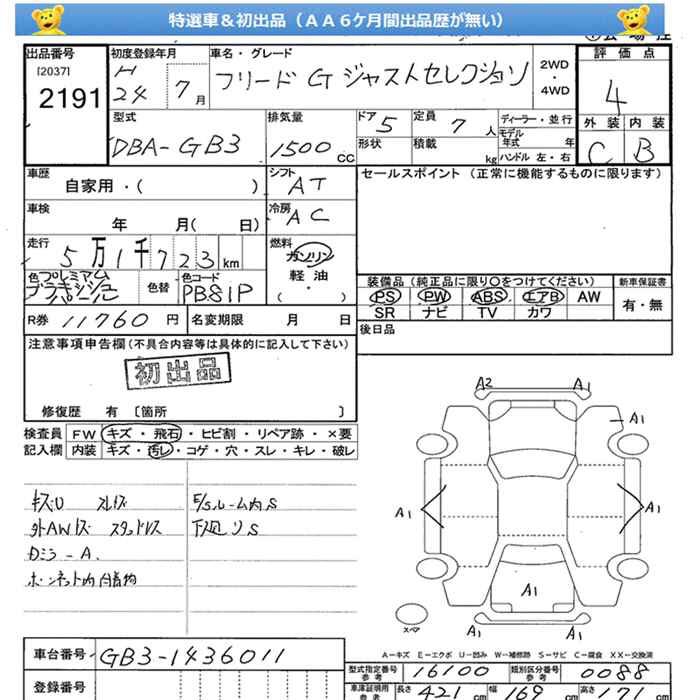 特選車&初出品（ＡＡ６ケ月間出品歴が無い）
出品番号 初度登録年月 車名・グレード 評価点
[2037]
2191 H24 7月 フリード G ジャストセレクション 2WD・4WD 4
外装 内装
型式 排気量 ドア 5 定員 7 人 ディーラー・並行
DBA-GB3 1500 CC 形状 積載 kg モデル年式 年 C B
ハンドル 左・右
車歴 自家用・( ) シフト AT セールスポイント（正常に機能するものに限ります）
車検 年 月( 日) 冷房 AC
走行 5万1千723 km 燃料 ガソリン
軽・油
( ・ )
色 プレミアム 色替 色コード PB81P 装備品（純正品に限り○をつけてください） 新車保証書
PS PW ABS エアB AW 有・無
SR ナビ TV カワ
R券 11760 円 名変期限 月 日 後日品
注意事項申告欄(不具合内容等は具体的に記入して下さい)
初出品
修復歴 有 〔箇所 〕
検査員 FW キズ・飛石・ヒビ割・リペア跡・×要
記入欄 内装 キズ・汚レ・コゲ・穴・スレ・キレ・破レ
A2 A1
A1
A1 A1
A1
A1 A1
スペア
A-キズ E-エクボ U-凹み W-補修跡 S-サビ C-腐食 XX-交換済
車台番号 GB3-1436011
登録番号
型式指定番号 参考 16100 類別区分番号 参考 0088
車庫証明用 参考 長さ 421 cm 幅 169 cm 高さ 171 cm